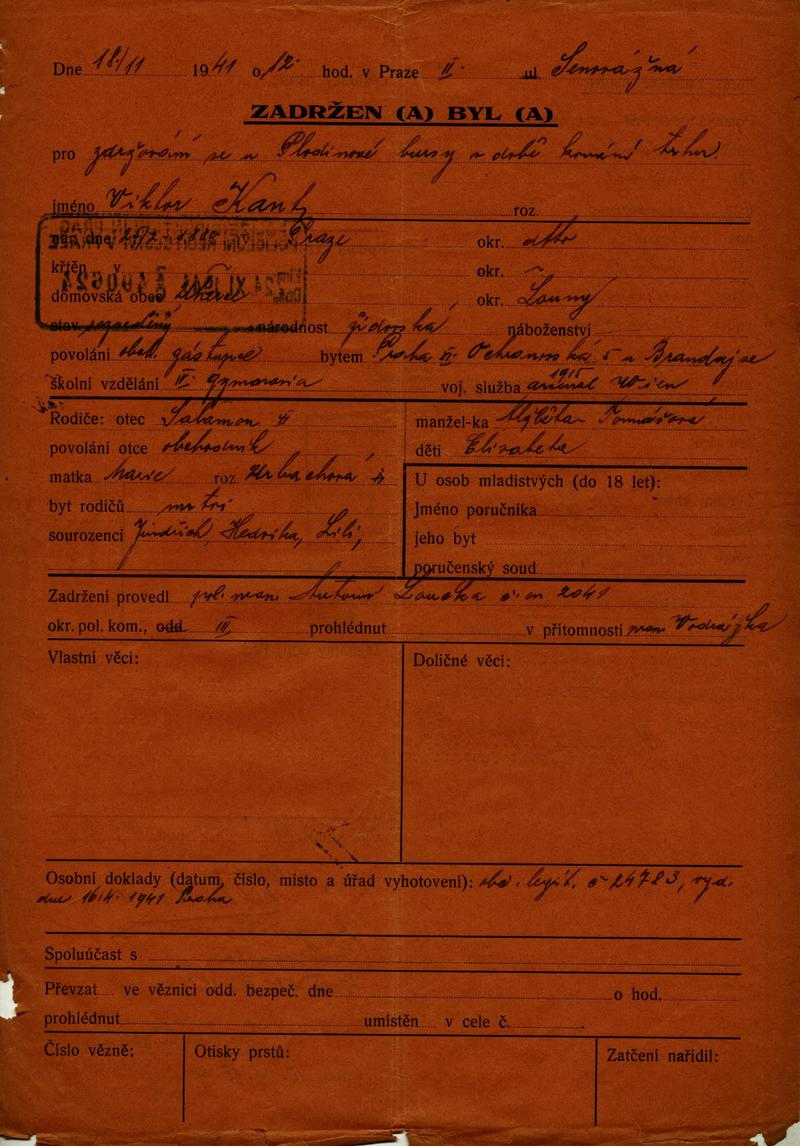 Dne 18/11 1941 o 12. hod. v Praze II. ul. Senovážná
ZADRŽEN (A) BYL (A)
pro zdržování se u Plodinové bursy v době konání trhu.
jméno Viktor Kantz roz.
nar. dne 1880 v Praze okr. dtto
křtěn v okr. ~
domovská obec okr. Louny
stav národnost židovská náboženství
povolání obch. zástupce bytem Praha Ochranovská 5 u Brandejse
školní vzdělání IV. gymnasia voj. služba 1915 arsenal Wien
Rodiče: otec Salamon
manžel-ka Alžběta Tomášová
povolání otce obchodník
děti Elisabeta
matka Marie roz. Urbachová
U osob mladistvých (do 18 let):
byt rodičů mrtvi
Jméno poručníka
sourozenci Jindřich, Hedvika, Lili,
jeho byt
poručenský soud
Zadržení provedl pol. Antonín Loucka č. 2041
okr. pol. kom., odd. III. prohlédnut v přítomnosti Vodrážka
Vlastní věci:
Doličné věci:
Osobní doklady (datum, číslo, místo a úřad vyhotovení): obč. legit. č 24783, vyd.
dne 16/4. 1941 Praha
Spoluúčast s
Převzat ve věznici odd. bezpeč. dne o hod.
prohlédnut umístěn v cele č.
Číslo vězně:
Otisky prstů:
Zatčení nařídil: